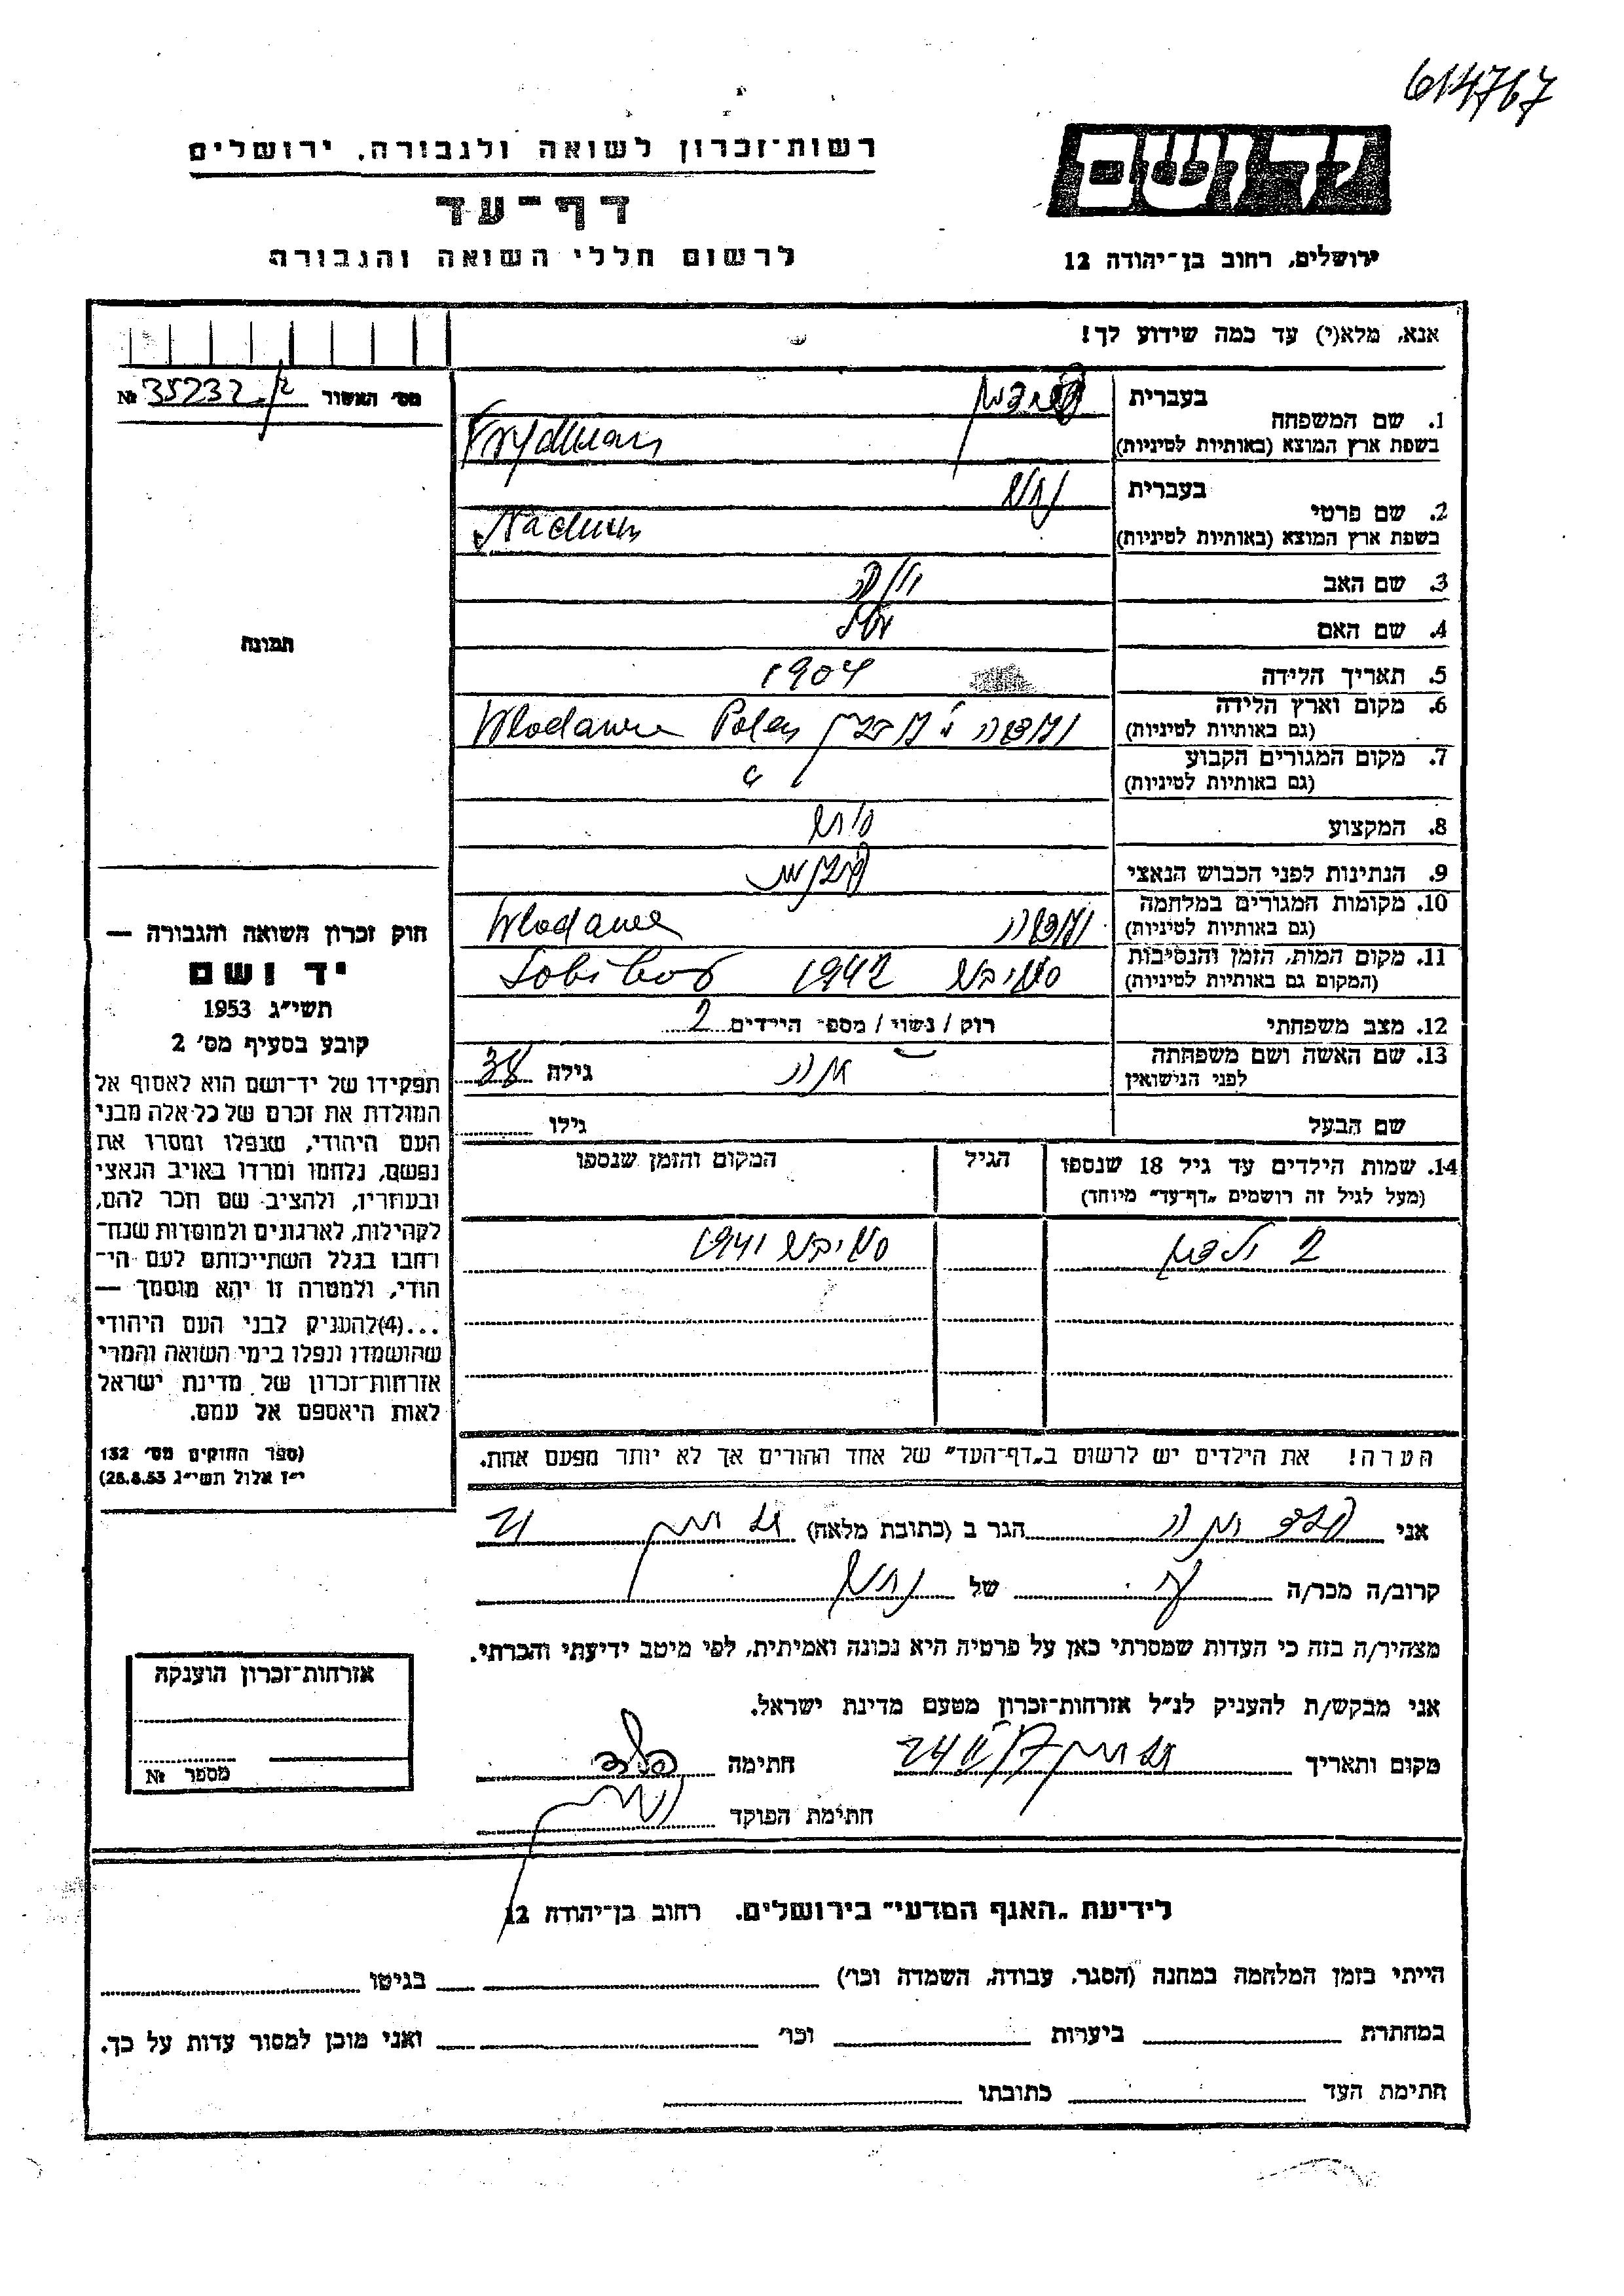 614767
יד ושם
רשות־זכרון לשואה ולגבורה, ירושלים
דף־עד
לרשום חללי השואה והגבורה
ירושלים, רחוב בן־יהודה 12
אנא, מלא(י) עד כמה שידוע לך!
מס׳ האשור 35232 №
בעברית פרידמן
1. שם המשפחה
בשפת ארץ המוצא (באותיות לטיניות) Frydman
בעברית נחום
2. שם פרטי
בשפת ארץ המוצא (באותיות לטיניות) Nachum
3. שם האב
4. שם האם
5. תאריך הלידה 1904
6. מקום וארץ הלידה
(גם באותיות לטיניות) Wlodawa Polen
7. מקום המגורים הקבוע
(גם באותיות לטיניות)
8. המקצוע סוחר
9. הנתינות לפני הכבוש הנאצי
10. מקומות המגורים במלחמה
(גם באותיות לטיניות) Wlodawa
11. מקום המות, הזמן והנסיבות
(המקום גם באותיות לטיניות) סוביבור 1942 Sobibor
12. מצב משפחתי רוק / נשוי / מספר הילדים 2
13. שם האשה ושם משפחתה
לפני הנישואין גילה 38
שם הבעל גילו
14. שמות הילדים עד גיל 18 שנספו הגיל המקום והזמן שנספו
(מעל לגיל זה רושמים „דף־עד” מיוחד)
2 ילדים סוביבור 1941
הערה! את הילדים יש לרשום ב„דף־העד” של אחד ההורים אך לא יותר מפעם אחת.
תמונה
חוק זכרון השואה והגבורה —
יד ושם
תשי״ג 1953
קובע בסעיף מס׳ 2
תפקידו של יד־ושם הוא לאסוף אל
המולדת את זכרם של כל אלה מבני
העם היהודי, שנפלו ומסרו את
נפשם, נלחמו ומרדו באויב הנאצי
ובעוזריו, ולהציב שם וזכר להם,
לקהילות, לארגונים ולמוסדות שנח־
רחבו בגלל השתייכותם לעם הי־
הודי, ולמטרה זו יהא מוסמך —
...(4)להעניק לבני העם היהודי
שהושמדו ונפלו בימי השואה והמרי
אזרחות־זכרון של מדינת ישראל
לאות היאספם אל עמם.
(ספר החוקים מס׳ 132
י״ז אלול תשי״ג 28.8.53)
אני הגר ב (כתובת מלאה)
קרוב/ה מכר/ה של נחום
מצהיר/ה בזה כי העדות שמסרתי כאן על פרטיה היא נכונה ואמיתית, לפי מיטב ידיעתי והכרתי.
אני מבקש/ת להעניק לנ״ל אזרחות־זכרון מטעם מדינת ישראל.
מקום ותאריך חתימה
חתימת הפוקד
אזרחות־זכרון הוענקה
מספר №
לידיעת „האגף המדעי” בירושלים, רחוב בן־יהודה 12
הייתי בזמן המלחמה במחנה (הסגר, עבודה, השמדה וכו׳) בגיטו
במחתרת ביערות וכו׳ ואני מוכן למסור עדות על כך.
חתימת העד כתובתו